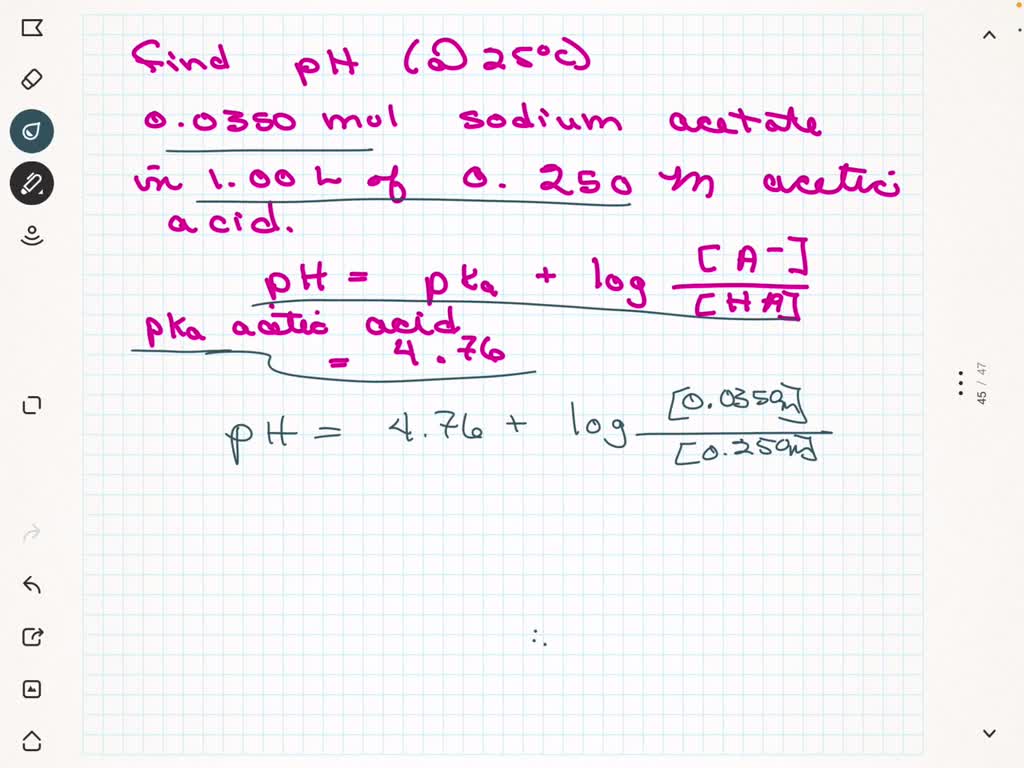 find pH (@ 25°C)
0.0350 mol sodium acetate
in 1.00 L of 0.250 M acetic
acid.
pH = pka + log [A-]/[HA]
pka acetic acid
= 4.76
pH = 4.76 + log [0.0350M]/[0.250M]
45 / 47